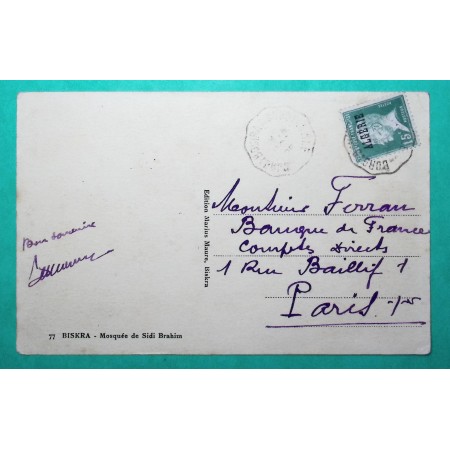 ALGERIE
15
Monsieur Ferran
Banque de France
Comptes Directs
1 Rue Baillif 1
Paris
Bon souvenir
Edition Marius Maure, Biskra
77 BISKRA - Mosquée de Sidi Brahim